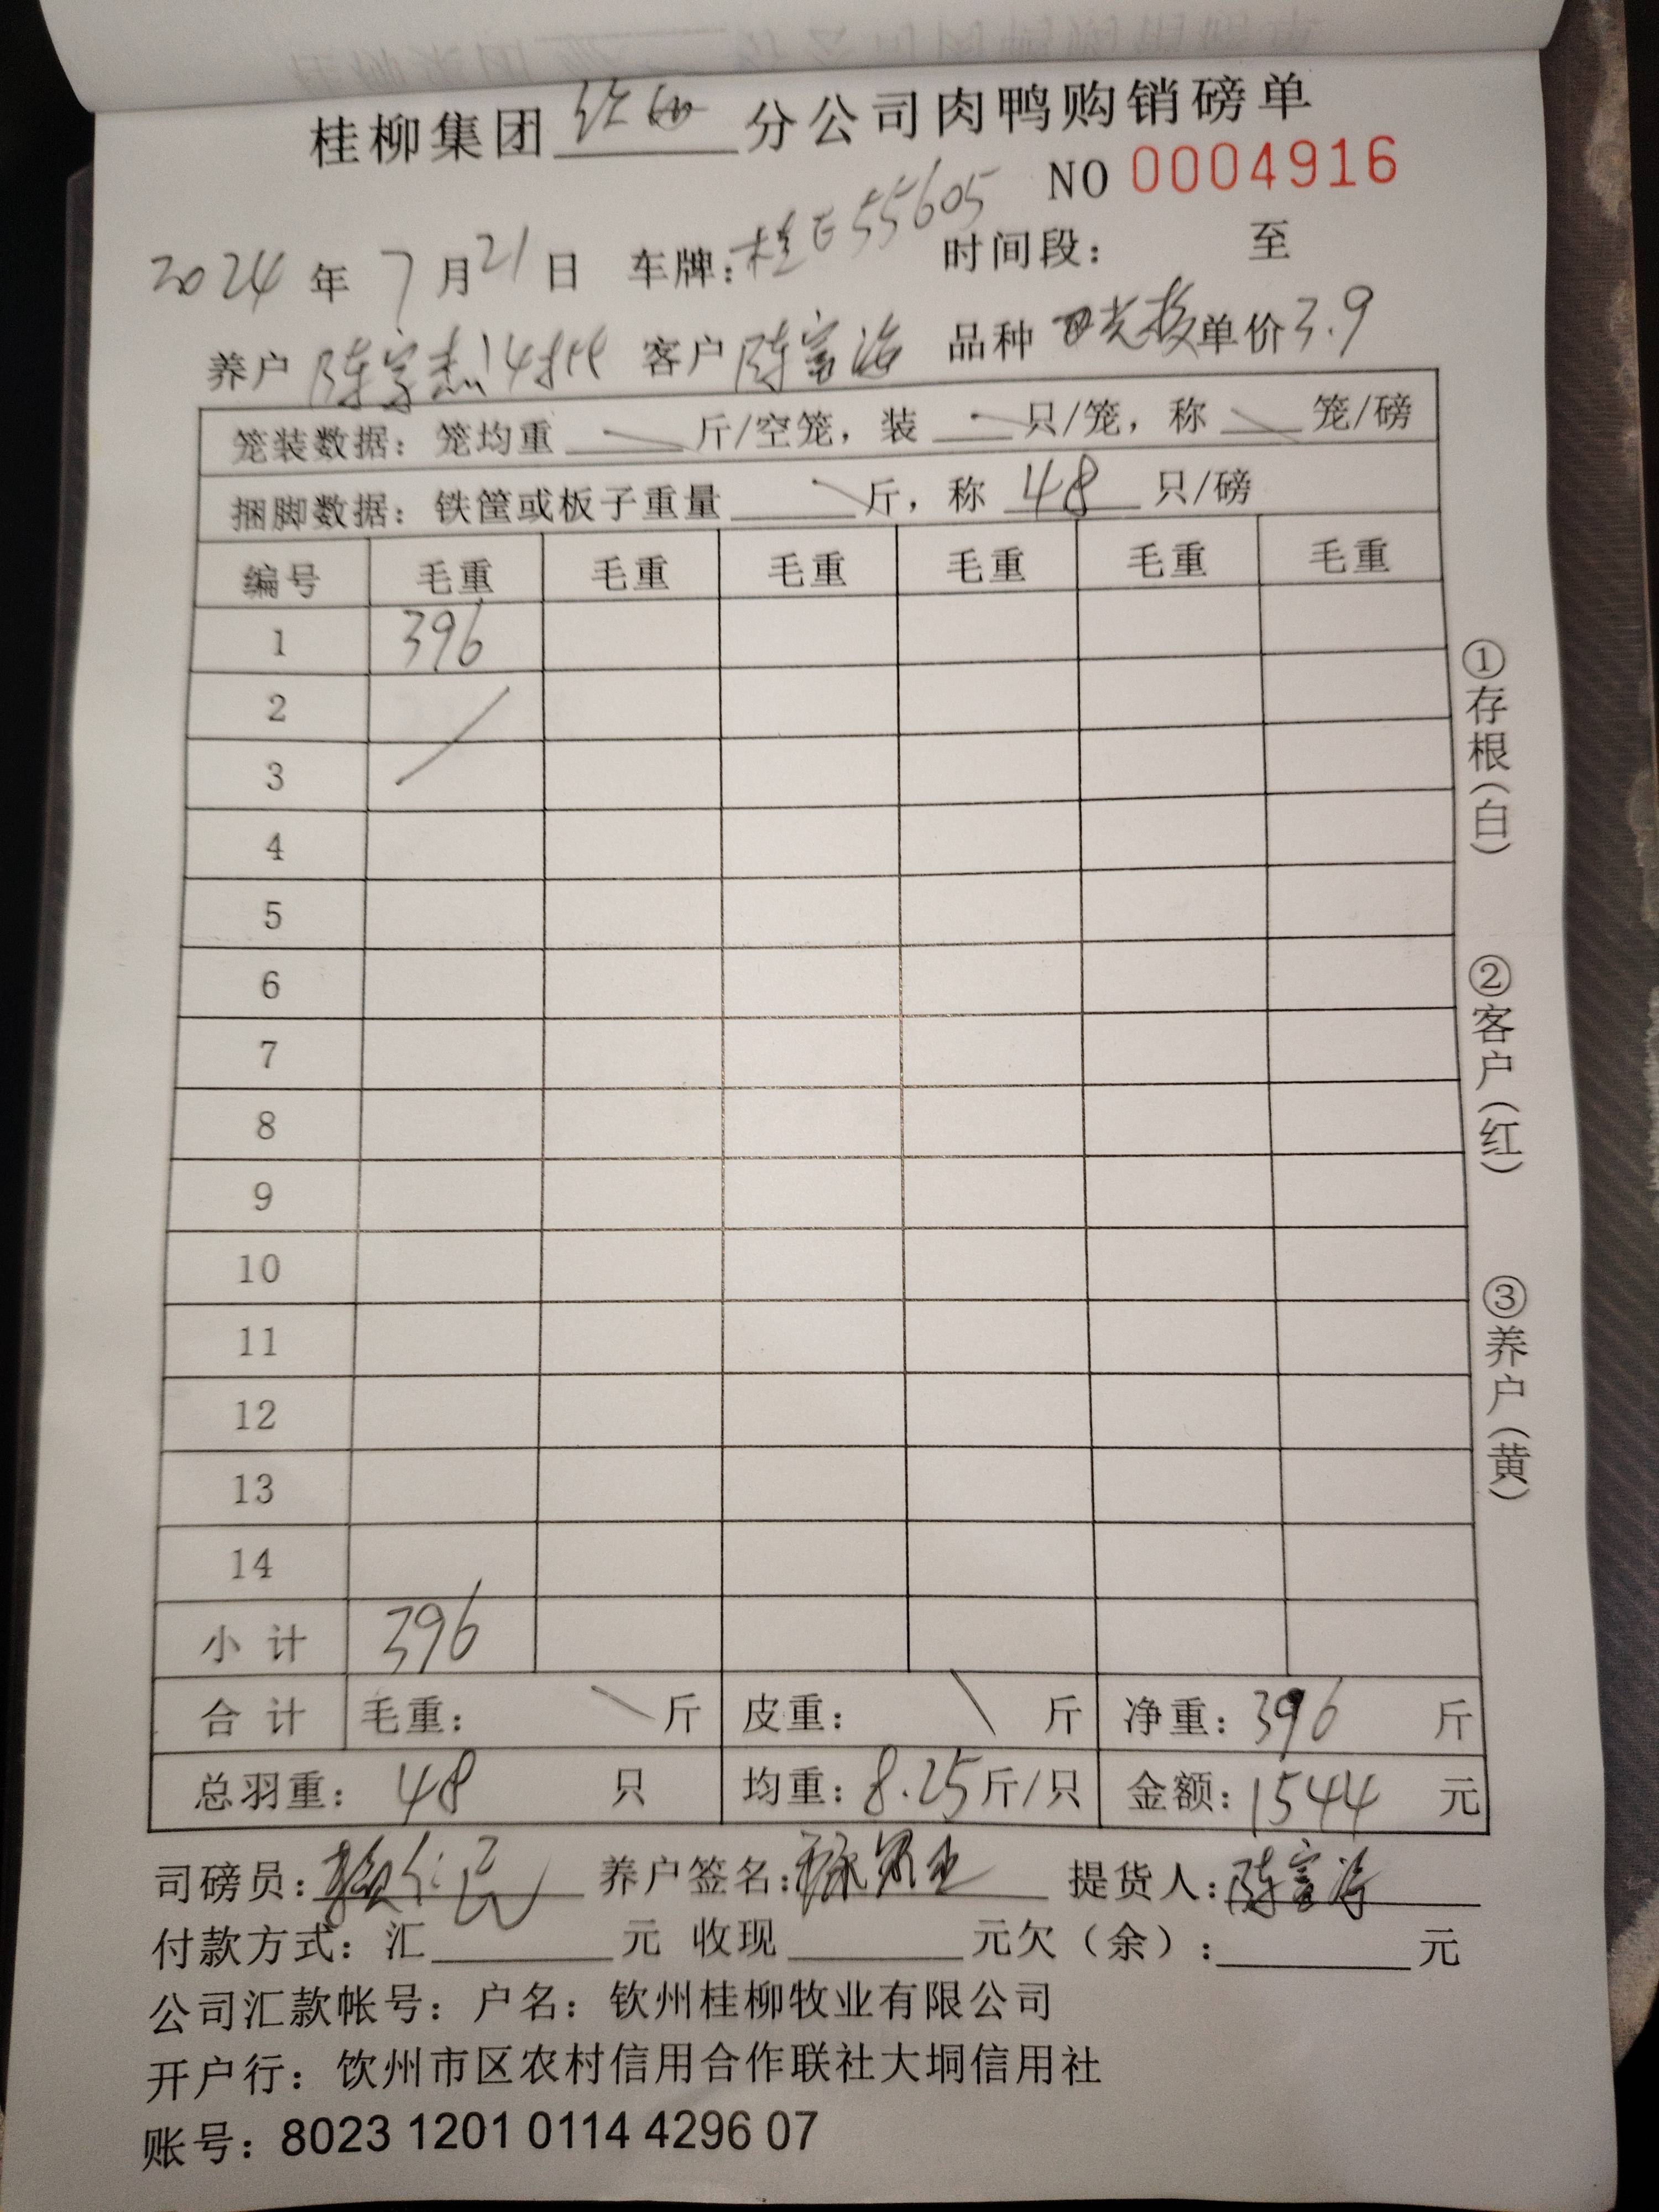 桂柳集团 分公司肉鸭购销磅单
NO 0004916
2024 年 7 月 21 日 车牌:桂E55605 时间段: 至
养户 陈 14批 客户 陈富 品种 单价 3.9
笼装数据: 笼均重 斤/空笼, 装 只/笼, 称 笼/磅
捆脚数据: 铁筐或板子重量 斤, 称 48 只/磅
编号 毛重 毛重 毛重 毛重 毛重 毛重
1 396
2
3
4
5
6
7
8
9
10
11
12
13
14
小计 396
合计 毛重: 斤 皮重: 斤 净重: 396 斤
总羽重: 48 只 均重: 8.25 斤/只 金额: 1544 元
司磅员: 养户签名: 提货人: 陈富
付款方式: 汇 元 收现 元欠(余): 元
公司汇款帐号: 户名: 钦州桂柳牧业有限公司
开户行: 饮州市区农村信用合作联社大垌信用社
账号: 8023 1201 0114 4296 07
①存根(白)
②客户(红)
③养户(黄)